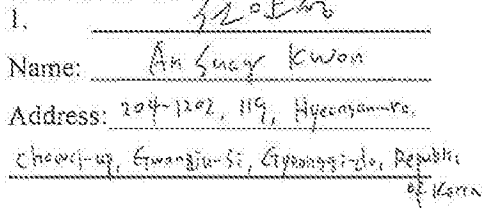 1.
Name: An Suay Kwon
Address: 204-1202, 119, Hyeonsan-ro,
Chowol-up, Gwangju-si, Gyeonggi-do, Republic
of Korea